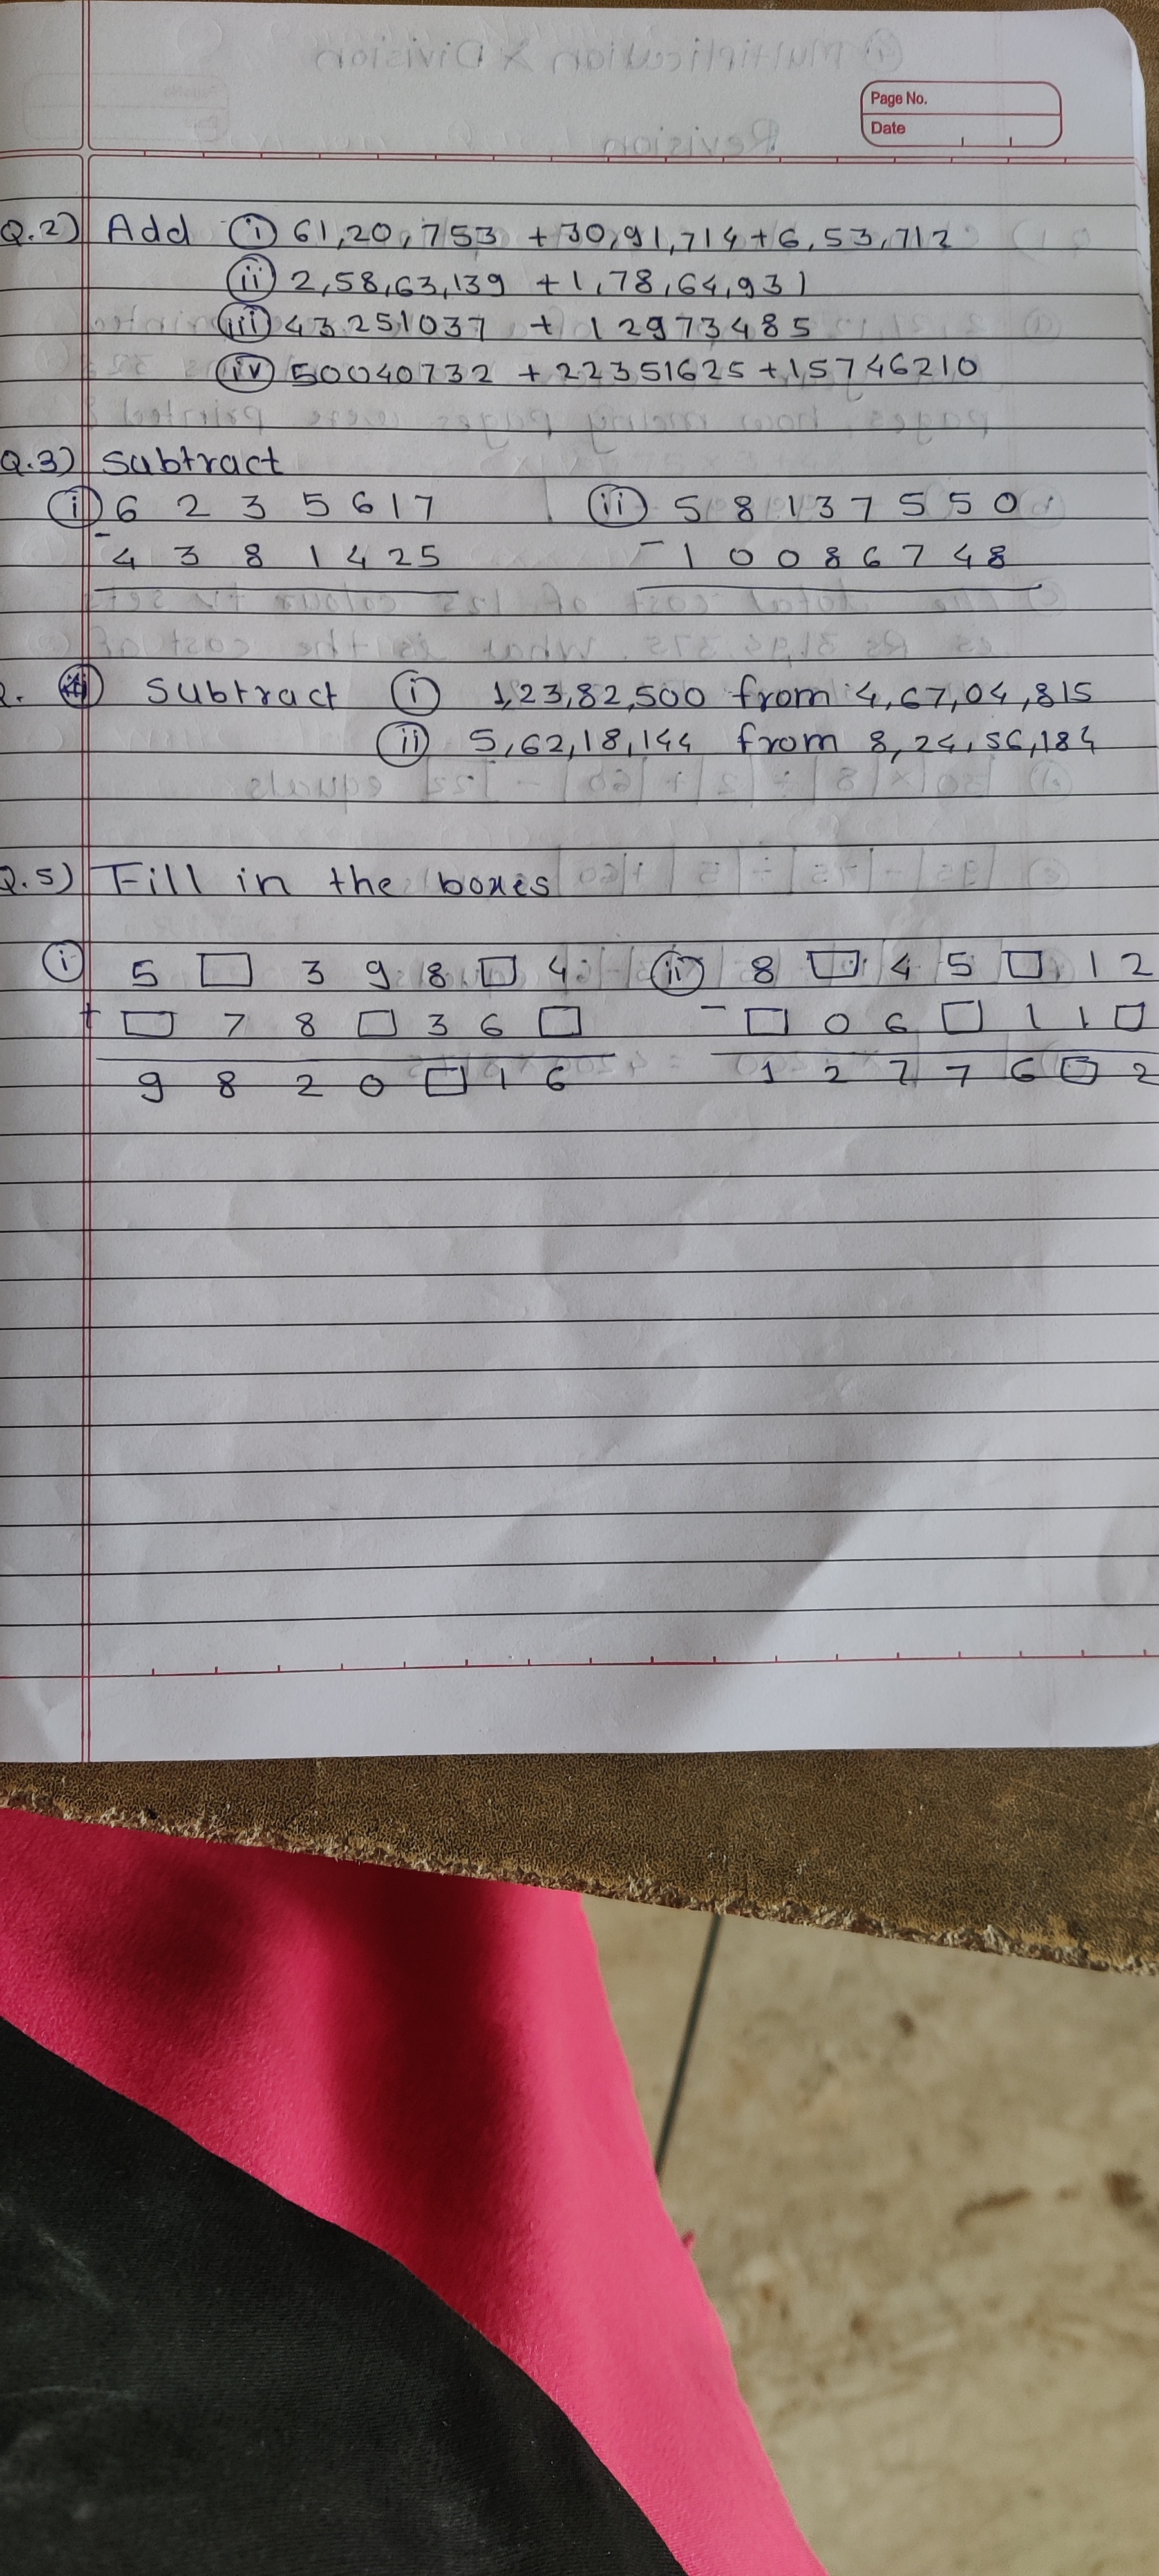 Page No.
Date
Q.2) Add (i) 61,20,753 + 30,91,714 + 6,53,712
(ii) 2,58,63,139 + 1,78,64,931
(iii) 43251037 + 12973485
(iv) 50040732 + 22351625 + 15746210
Q.3) Subtract
(i) 6 2 3 5 6 1 7 (ii) 5 8 1 3 7 5 5 0
- 4 3 8 1 4 2 5 - 1 0 0 8 6 7 4 8
Subtract (i) 1,23,82,500 from 4,67,04,815
(ii) 5,62,18,144 from 8,24,56,184
Q.5) Fill in the boxes
(i) 5 □ 3 9 8 □ 4 (ii) 8 □ 4 5 □ 1 2
+ □ 7 8 □ 3 6 □ - □ 0 6 □ 1 1 □
9 8 2 0 □ 1 6 1 2 7 7 6 □ 2